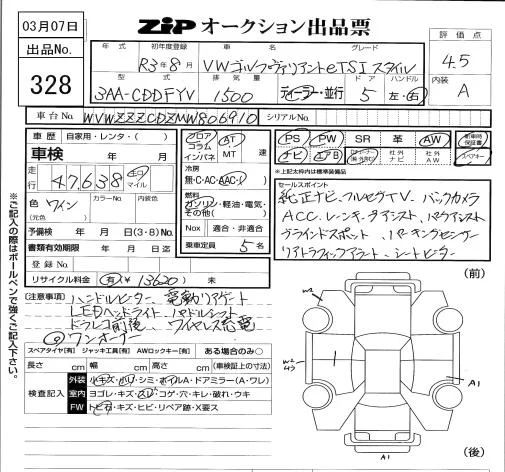 03月07日
ZIP オークション出品票
出品No.
328
年式
初年度登録
車名
グレード
R3年8月
VWゴルフヴァリアントeTSIスタイル
評価点
4.5
型式
排気量
ドア
ハンドル
3AA-CDDFYV
1500
ディーラー・並行
5
左・右
内装
A
車台No.
WVWZZZCDZMW806910
シリアルNo.
車歴
自家用・レンタ・( )
車検
年 月
走行
47,638
キロ
マイル
色
ワイン
(元色)
カラーNo.
内装色
予備検
年 月(3・8)No.
書類有効期限
年 月 日迄
登録No.
リサイクル料金
有(¥13620) 未
フロア
コラム
インパネ
AT
MT
速
冷房
無・C・AC・AAC
燃料
ガソリン・軽油・電気・
その他( )
Nox
適合・非適合
乗車定員
5名
PS
PW
SR
革
AW
新車時保証書
ナビ
エアB
社外ナビ
社外AW
スペアキー
※上記太枠内は標準装備品
セールスポイント
純正ナビ、フルセグTV、バックカメラ
ACC、レーンキープアシスト、パークアシスト
ブラインドスポット、パーキングセンサー
リアトラフィックアラート、シートヒーター
注意事項
ハンドルヒーター 電動リアゲート
LEDヘッドライト、パドルシフト
ドラレコ前後、ワイヤレス充電
ワンオーナー
スペアタイヤ[有] ジャッキ工具[有] AWロックキー[有] ある場合のみ○
長さ cm 幅 cm 高さ cm (車検証上の寸法)
検査記入
外装
小キズ・小凹・シミ・ホイルA・ドアミラー(A・ワレ)
室内
ヨゴレ・キズ・スレ・コゲ・穴・キレ・破れ・ウキ
FW
トビ石・キズ・ヒビ・リペア跡・X要ス
※ご記入の際はボールペンで強くご記入下さい。
(前)
W2
W2
A1
A1
(後)